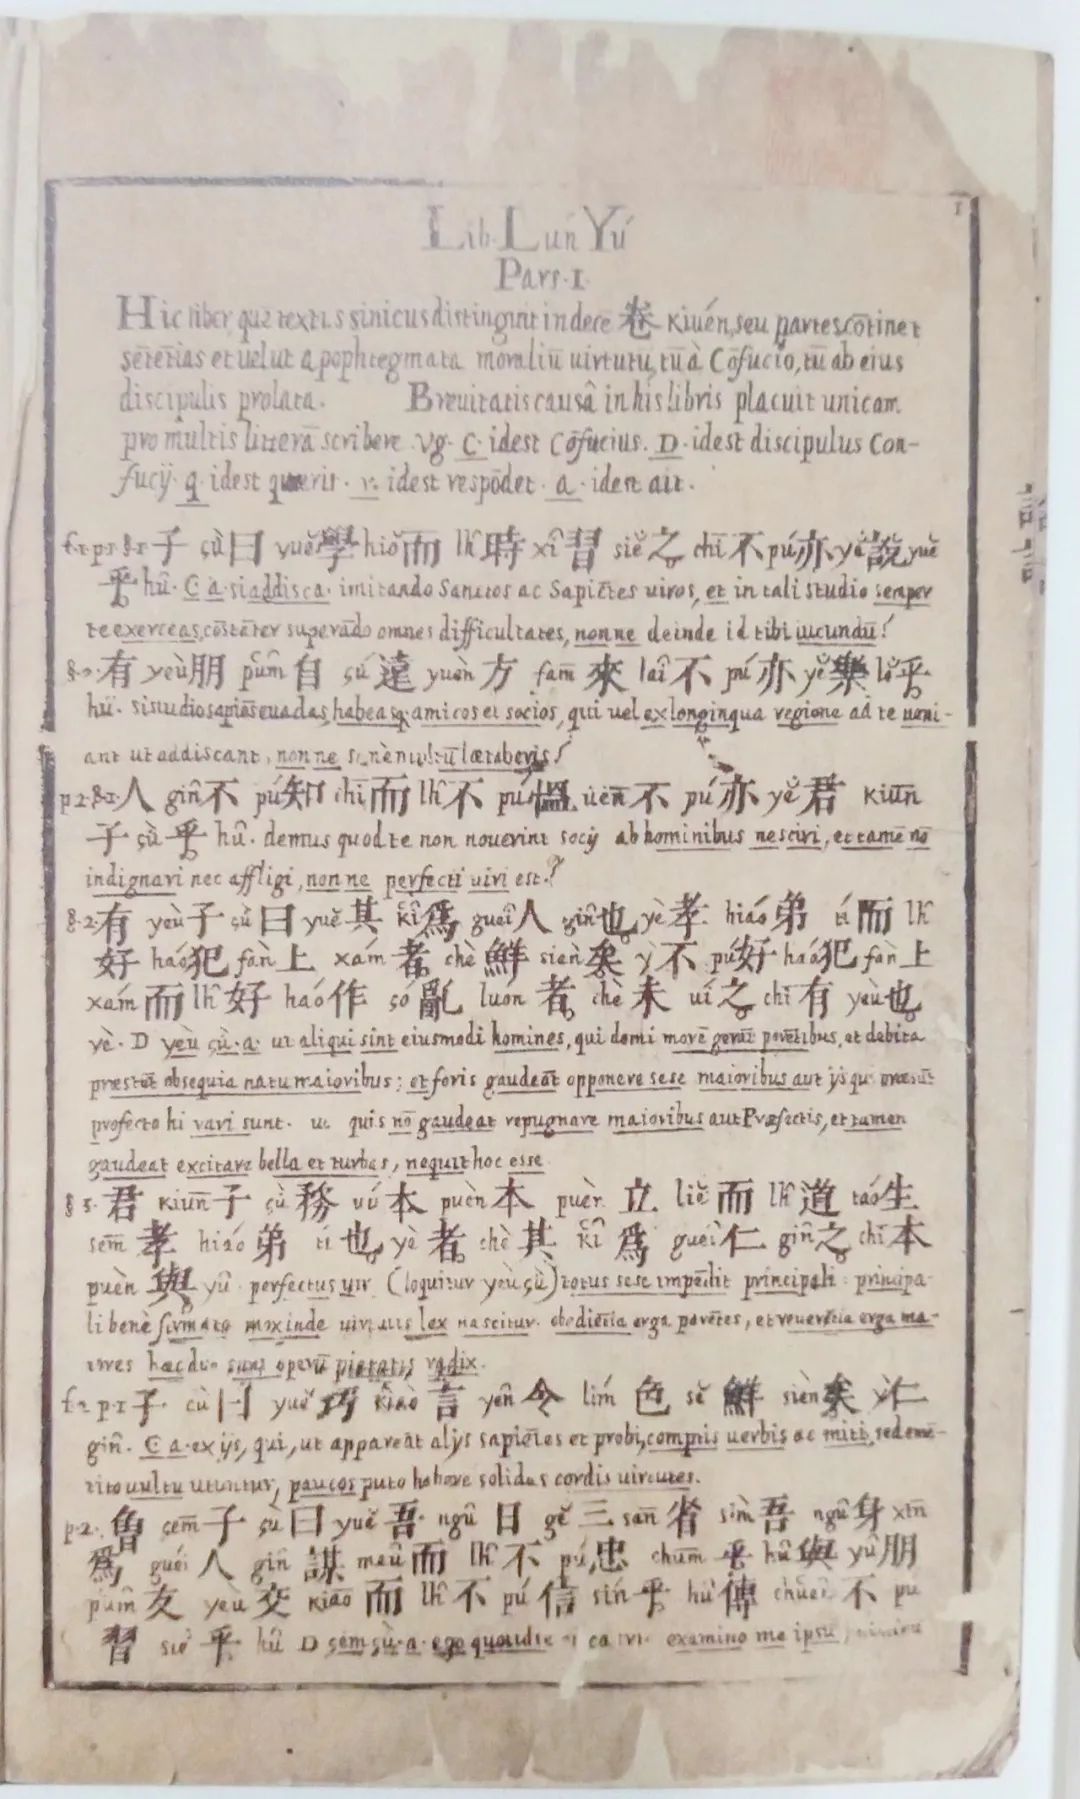 1
Lib. Lún Yú
Pars. I.
Hic liber, quē textus sinicus distinguit in decē 卷 kiuén, seu partes, cōtinet
sētētias et velut apophtegmata moraliū uirtutū, tū à Cōfucio, tū ab eius
discipulis prolata. Breuitatis causâ in his libris placuit unicam
pro multis litterā scribere. Vg. C. idest Cōfucius. D. idest discipulus Con-
fucij. q. idest quærit. r. idest respōdet. a. idest ait.
f.1. p.1. §.1. 子 çù 曰 yuĕ 學 hiŏ 而 lh̑ 時 xî 習 siĕ 之 chī 不 pú 亦 yĕ 說 yuĕ
乎 hû. C. a. si addisca. imitando Sanctos ac Sapiētes uiros, et in tali studio semper
te exerceas, cōstāter superādo omnes difficultates, nonne deinde id tibi iucundū?
有 yeù 朋 pûm 自 çú 遠 yuèn 方 fam̄ 來 laî 不 pú 亦 yĕ 樂 lŏ 乎
hû. si studio sapiēs euadas, habeasq. amicos et socios, qui uel ex longinqua regione ad te ueni-
ant ut addiscant, nonne multū lætaberis?
p.2. §.1. 人 gin̂ 不 pú 知 chī 而 lh̑ 不 pú 慍 uén 不 pú 亦 yĕ 君 kiun̄
子 çù 乎 hû. demus quod te non nouerint socij ab hominibus nesciri, et tamē nō
indignari nec affligi, nonne perfecti uiri est?
§.2. 有 yeù 子 çù 曰 yuĕ 其 kî 爲 gueî 人 gin̂ 也 yè 孝 hiáo 弟 tí 而 lh̑
好 háo 犯 fàn 上 xám 者 chè 鮮 sièn 矣 ỳ 不 pú 好 háo 犯 fàn 上
xám 而 lh̑ 好 háo 作 só 亂 luón 者 chè 未 uí 之 chī 有 yeù 也
yè. D yeù çù. a. ut aliqui sint eiusmodi homines, qui domi morē gerāt parētibus, et debita
præstēt obsequia natu maioribus; et foris gaudeāt opponere sese maioribus aut ijs qui præsūt
profecto hi rari sunt. ut quis nō gaudeat repugnare maioribus aut Præfectis, et tamen
gaudeat excitare bella et turbas, nequit hoc esse.
君 kiun̄ 子 çù 務 vú 本 puèn 本 puèn 立 liĕ 而 lh̑ 道 táo 生
sem̄ 孝 hiáo 弟 tí 也 yè 者 chè 其 kî 爲 gueî 仁 gin̂ 之 chī 本
puèn 與 yû. perfectus uir (loquitur yeù çù) totus sese impēdit principali: principa-
li benè firmato mox inde uirtutis lex nascitur. obediētia erga parētes, et reuerētia erga ma-
iores hæc duo sunt operū pietatis radix.
f.2. p.1 子 çù 曰 yuĕ 巧 kiào 言 yên 令 lím 色 sĕ 鮮 sièn 矣 ỳ 仁
gin̂. C. a. ex ijs, qui, ut appareāt alijs sapiētes et probi, comptis uerbis ac miti, sed emē-
tito uultu utuntur, paucos puto habere solidas cordis uirtutes.
p.2. 曾 çem̄ 子 çù 曰 yuĕ 吾 ngû 日 gĕ 三 san̄ 省 sìm 吾 ngû 身 xin̄
爲 guéi 人 gin̂ 謀 meû 而 lh̑ 不 pú 忠 chum̄ 乎 hû 與 yû 朋
pûm 友 yeù 交 kiāo 而 lh̑ 不 pú 信 sín 乎 hû 傳 不 pu
習 siĕ 乎 hû D çem çù. a. ego quotidie examino me ipsū
論語